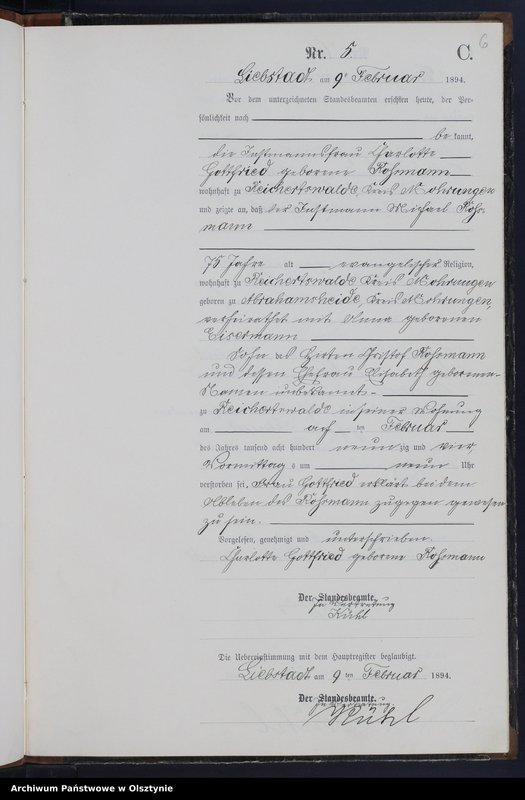 6
Nr. 5. C.
Liebstadt am 9ten Februar 1894.
Vor dem unterzeichneten Standesbeamten erschien heute, der Per-
sönlichkeit nach
be kannt,
die Instmannsfrau Charlotte
Gottfried geborene Rohrmann
wohnhaft zu Reichertswalde, Kreis Mohrungen
und zeigte an, daß der Instmann Michael Rohr-
mann
75 Jahre alt evangelischer Religion,
wohnhaft zu Reichertswalde Kreis Mohrungen
geboren zu Abrahamsheide, Kreis Mohrungen,
verheirathet mit Anna geborenen
Eisermann
Sohn des Hirten Christof Rohrmann
und dessen Ehefrau Elisabeth geborenen
Namen unbekannt
zu Reichertswalde in seiner Wohnung
am acht ten Februar
des Jahres tausend acht hundert neun zig und vier
Vormittag s um neun Uhr
verstorben sei, Frau Gottfried erklärt bei dem
Ableben des Rohrmann zugegen gewesen
zu sein.
Vorgelesen, genehmigt und unterschrieben
Charlotte Gottfried geborene Rohrmann
Der Standesbeamte.
In Vertretung
Kühl
Die Uebereinstimmung mit dem Hauptregister beglaubigt.
Liebstadt am 9 ten Februar 1894.
Der Standesbeamte.
In Vertretung
Kühl
Archiwum Państwowe w Olsztynie